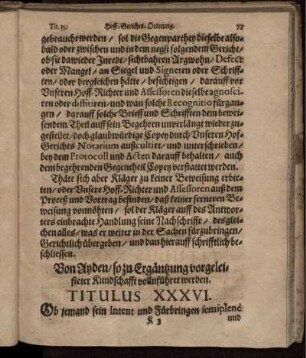 Tit. 35. Hoff-Gerichts-Ordnung. 73
gebraucht werden / sol die Gegenparthey dieselbe also-
bald oder zwischen und in dem negst folgendem Gericht-
ob sie dawieder Inrede / sichtbahren Argwohn / Defect
oder Mangel / an Siegel und Signeten oder Schriff-
ten / oder dergleichen hätte / besichtigen / darauff vor
Unseren Hoff-Richter und Assessoren dieselb agnosci-
ren oder diffitiren / und wan solche Recognitio fürgan-
gen / darauff solche Brieff und Schrifften dem bewei-
sendem Theil auff sein Begehren unverlängt wieder zu-
gestellet / doch glaubwürdige Copey durch Unseren Hof-
Gerichts Notarium ausscultirt / und unterschrieben /
bey dem Protocoll und Acten darauff behalten / auch
dem begehrenden Gegentheil Copey verstattet werden.
Thäte sich aber Kläger zu keiner Beweisung erbie-
ten / oder Unsere Hoff-Richter und Assessoren auß dem
Proceß und Vortrag befinden / daß keiner ferneren Be-
weisung vonnöhten / sol der Kläger auff des Antwor-
ters einbrachte Handlung seine Nachschriffte / desglei-
chen alles / was er weiter in der Sachen fürzubringen /
Gerichtlich übergeben / und dan hierauff schrifftlich be-
schliessen.
Von Ayden / so zu Ergäntzung vorgelei-
steter Kundschafft vollnführet werden.
TITULUS XXXVI.
Ob jemand sein Intent und Fürbringen semiplenè
K 3 und